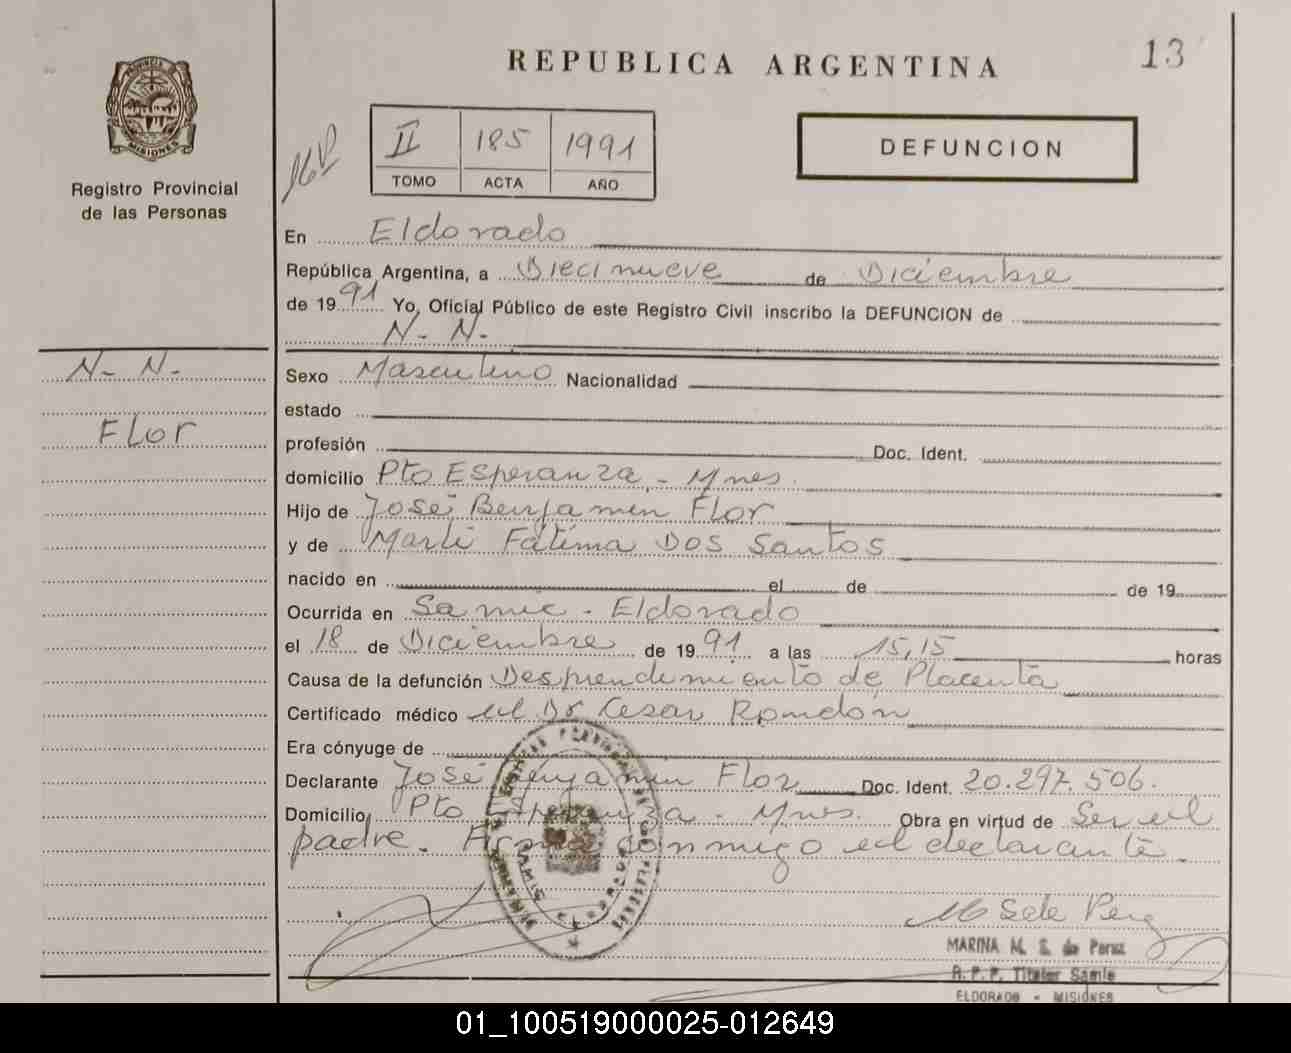 REPUBLICA ARGENTINA
13
PROVINCIA DE
MISIONES
Registro Provincial
de las Personas
II 185 1991
TOMO ACTA AÑO
DEFUNCION
En Eldorado
República Argentina, a Diecinueve de Diciembre
de 1991 Yo, Oficial Público de este Registro Civil inscribo la DEFUNCION de
N- N-
N- N-
Flor
Sexo Masculino Nacionalidad
estado
profesión Doc. Ident.
domicilio Pto Esperanza - Mnes.
Hijo de José Benjamin Flor
y de Marli Fátima Dos Santos
nacido en el de de 19
Ocurrida en Samic - Eldorado
el 18 de Diciembre de 1991 a las 15,15 horas
Causa de la defunción Desprendimiento de Placenta
Certificado médico el Dr Cesar Rondón
Era cónyuge de
Declarante José Benjamin Flor Doc. Ident. 20.297.506.
Domicilio Pto Esperanza - Mnes. Obra en virtud de Ser el
padre. Firma conmigo el declarante.
MARINA M. S. de Perez
R. P. P. Titular Samic
ELDORADO - MISIONES
01_100519000025-012649